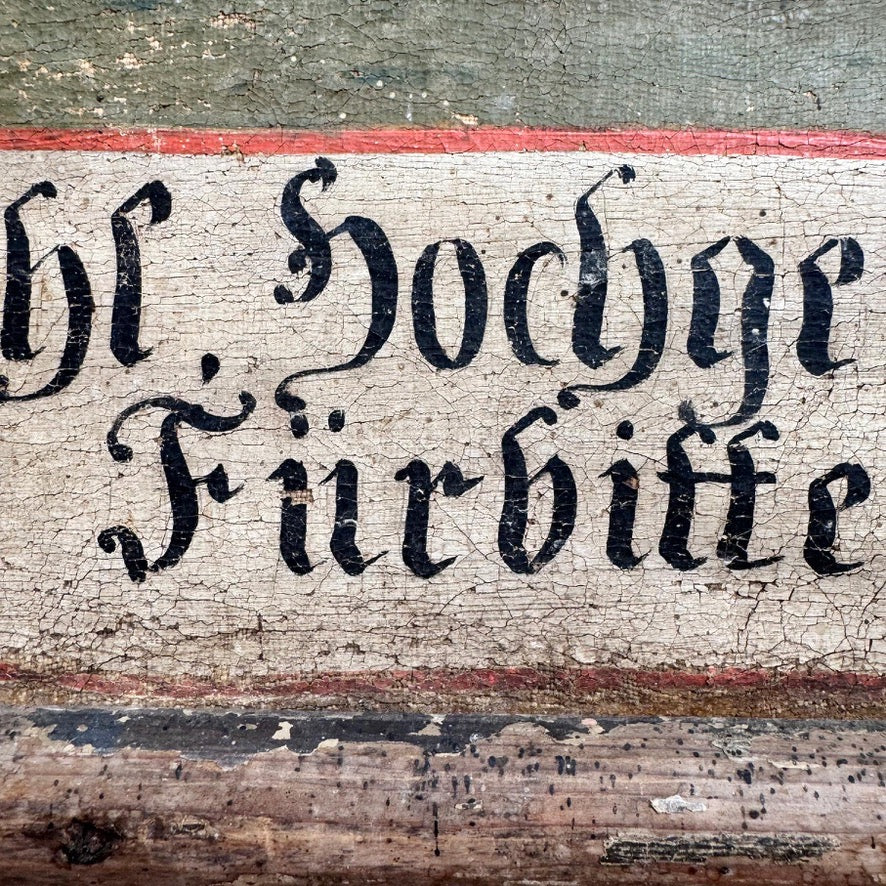 hl Hochge
Fürbitte